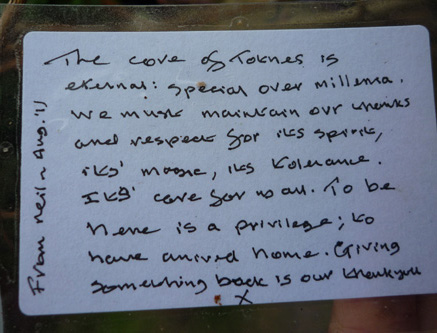 The cove of Toknes is
eternal: special over millenia.
We must maintain our thanks
and respect for its spirit,
its' magic, its tolerance.
Its' care for us all. To be
here is a privilege; to
have arrived home. Giving
something back is our thankyou
x
From Neil ~ Aug. '11